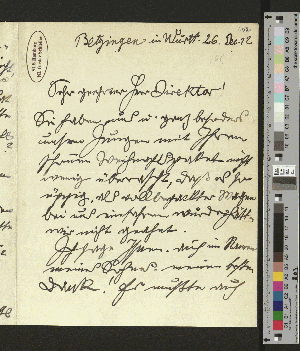 Betzingen in Württ. 26. Dez. 12
Sehr geehrter Herr Direktor!
Sie haben uns u. ganz besonders
unsern Jungen mit Ihrem
schönen Weihnachtspaket nicht
wenig überrascht, daß es so
als vollbepackter Wagen
bei uns einfahren würde, hätten
wir nicht geahnt.
Ich sage Ihnen auch im Namen
meines Sohnes meinen besten
Dank. Es mußte auch